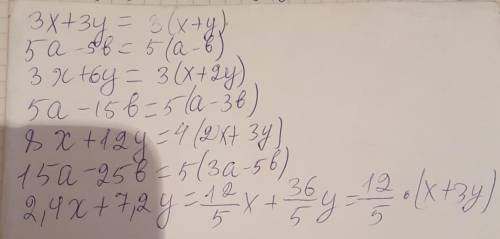 3x+3y = 3(x+y)
5a-5в = 5(a-в)
3x+6y = 3(x+2y)
5a-15в=5(a-3в)
8x+12y=4(2x+3y)
15a-25в=5(3a-5в)
2,4x+7,2y=12/5x+36/5y=12/5•(x+3y)